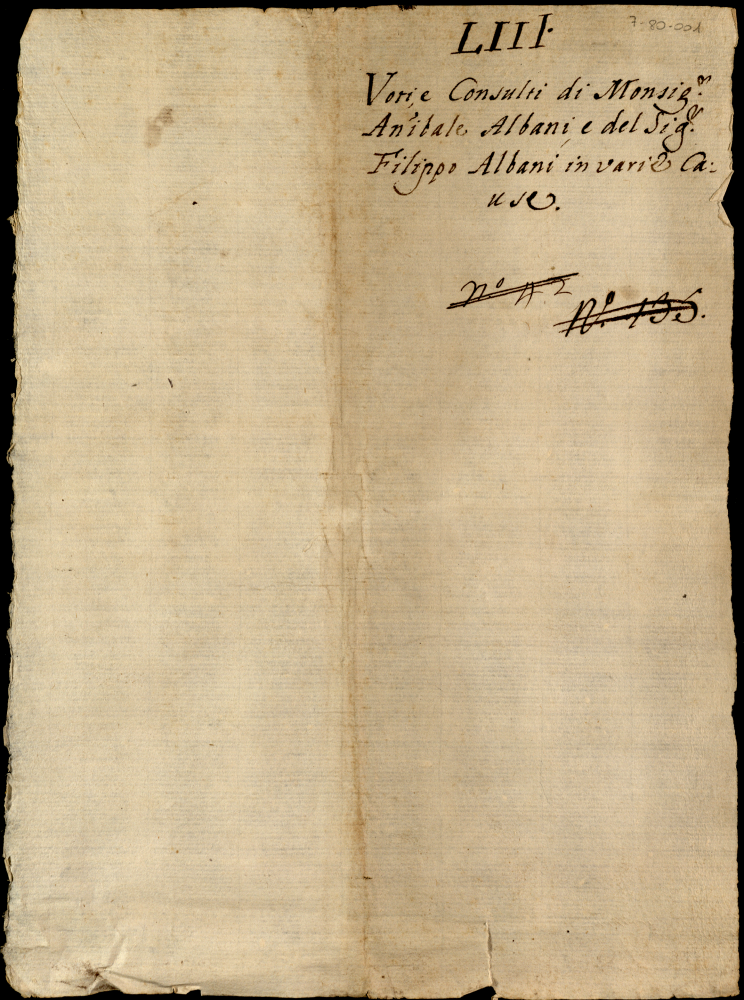 7-80-001
LIII.
Voti, e Consulti di Monsig.r
Anibale Albani, e del Sig.r
Filippo Albani in varie Ca:
use.
No. 42
No. 136.